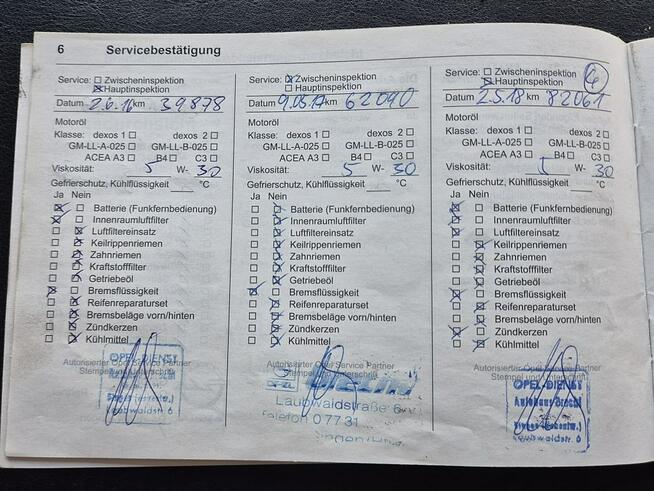 6 Servicebestätigung
Service: Zwischeninspektion
Hauptinspektion
Datum 2.6.16 km 39878
Motoröl
Klasse: dexos 1 dexos 2
GM-LL-A-025 GM-LL-B-025
ACEA A3 B4 C3
Viskosität: 5 W- 30
Gefrierschutz, Kühlflüssigkeit °C
Ja Nein
Batterie (Funkfernbedienung)
Innenraumluftfilter
Luftfiltereinsatz
Keilrippenriemen
Zahnriemen
Kraftstofffilter
Getriebeöl
Bremsflüssigkeit
Reifenreparaturset
Bremsbeläge vorn/hinten
Zündkerzen
Kühlmittel
Autorisierter Opel Service Partner
Stempel und Unterschrift
OPEL-DIENST
Laubwaldstr. 6
Service: Zwischeninspektion
Hauptinspektion
Datum 9.05.17 km 62090
Motoröl
Klasse: dexos 1 dexos 2
GM-LL-A-025 GM-LL-B-025
ACEA A3 B4 C3
Viskosität: 5 W- 30
Gefrierschutz, Kühlflüssigkeit °C
Ja Nein
Batterie (Funkfernbedienung)
Innenraumluftfilter
Luftfiltereinsatz
Keilrippenriemen
Zahnriemen
Kraftstofffilter
Getriebeöl
Bremsflüssigkeit
Reifenreparaturset
Bremsbeläge vorn/hinten
Zündkerzen
Kühlmittel
Autorisierter Opel Service Partner
Stempel
Laubwaldstraße 6
Telefon 0 77 31
Service: Zwischeninspektion
Hauptinspektion
4
Datum 2.5.18 km 82061
Motoröl
Klasse: dexos 1 dexos 2
GM-LL-A-025 GM-LL-B-025
ACEA A3 B4 C3
Viskosität: 5 W- 30
Gefrierschutz, Kühlflüssigkeit °C
Ja Nein
Batterie (Funkfernbedienung)
Innenraumluftfilter
Luftfiltereinsatz
Keilrippenriemen
Zahnriemen
Kraftstofffilter
Getriebeöl
Bremsflüssigkeit
Reifenreparaturset
Bremsbeläge vorn/hinten
Zündkerzen
Kühlmittel
Autorisierter Opel Service Partner
OPEL-DIENST
Autohaus
Laubwaldstr. 6